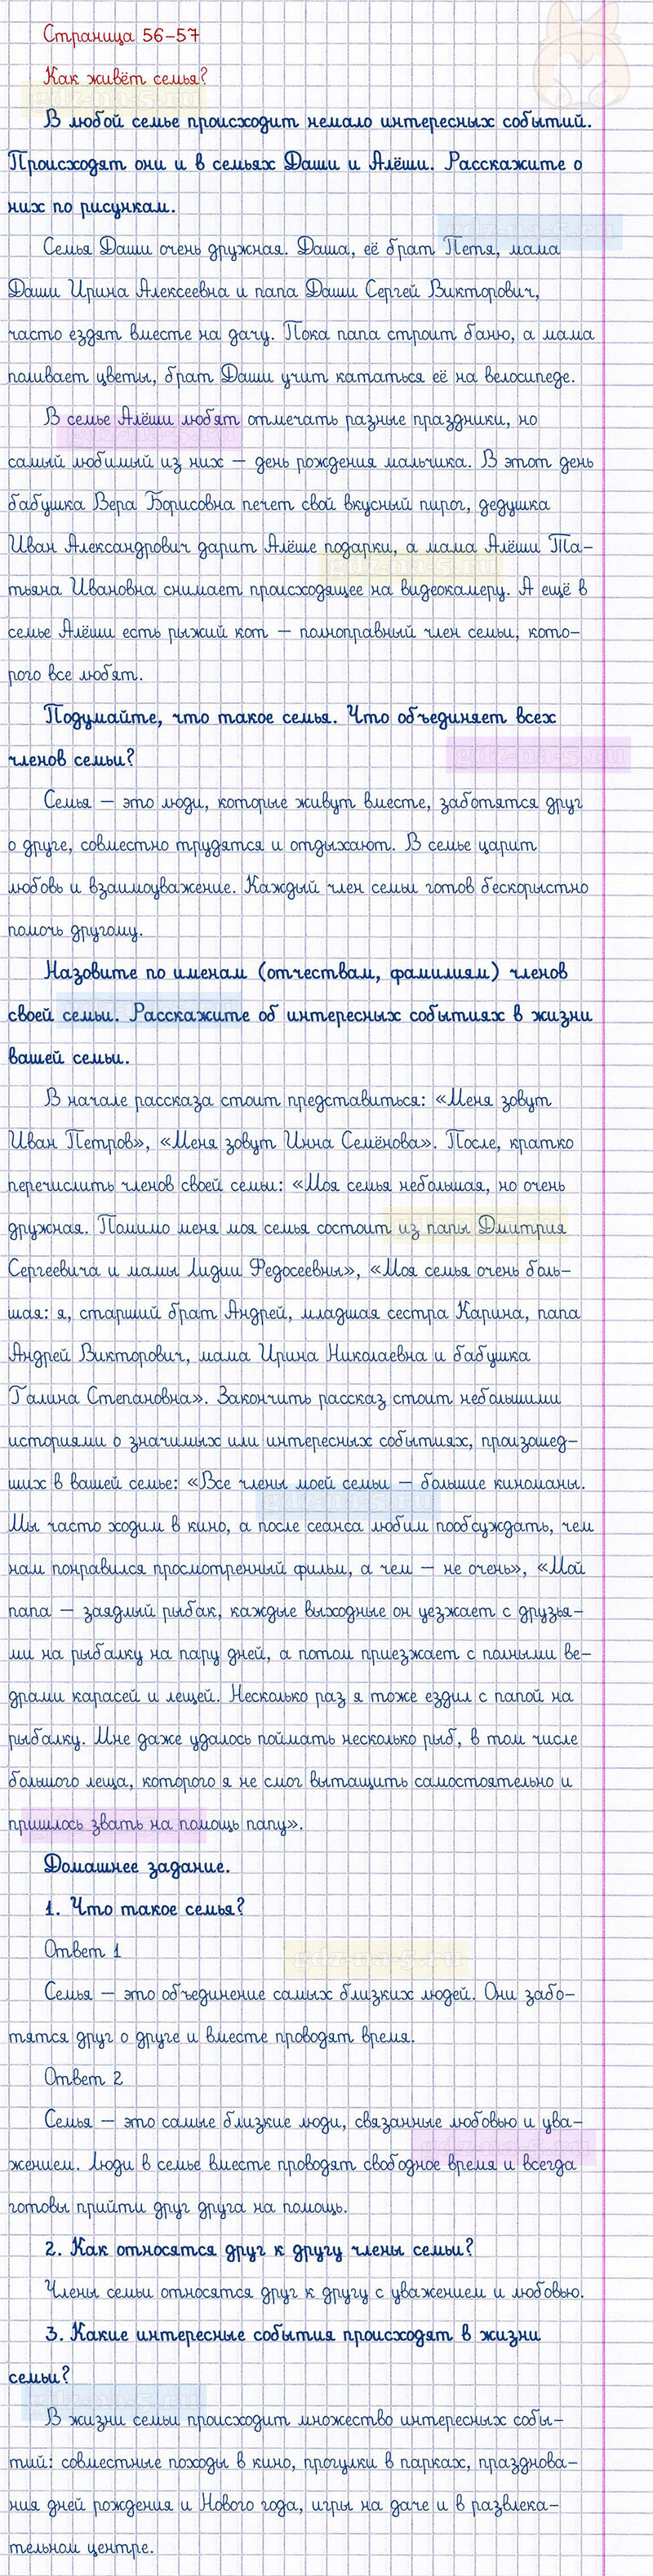 Страница 56-57
Как живёт семья?
В любой семье происходит немало интересных событий.
Происходят они и в семьях Даши и Алёши. Расскажите о
них по рисункам.
Семья Даши очень дружная. Даша, её брат Петя, мама
Даши Ирина Алексеевна и папа Даши Сергей Викторович,
часто ездят вместе на дачу. Пока папа строит баню, а мама
поливает цветы, брат Даши учит кататься её на велосипеде.
В семье Алёши любят отмечать разные праздники, но
самый любимый из них – день рождения мальчика. В этот день
бабушка Вера Борисовна печет свой вкусный пирог, дедушка
Иван Александрович дарит Алёше подарки, а мама Алёши Та-
тьяна Ивановна снимает происходящее на видеокамеру. А ещё в
семье Алёши есть рыжий кот – полноправный член семьи, кото-
рого все любят.
Подумайте, что такое семья. Что объединяет всех
членов семьи?
Семья – это люди, которые живут вместе, заботятся друг
о друге, совместно трудятся и отдыхают. В семье царит
любовь и взаимоуважение. Каждый член семьи готов бескорыстно
помочь другому.
Назовите по именам (отчествам, фамилиям) членов
своей семьи. Расскажите об интересных событиях в жизни
вашей семьи.
В начале рассказа стоит представиться: «Меня зовут
Иван Петров», «Меня зовут Инна Семёнова». После, кратко
перечислить членов своей семьи: «Моя семья небольшая, но очень
дружная. Помимо меня моя семья состоит из папы Дмитрия
Сергеевича и мамы Лидии Федосеевны», «Моя семья очень боль-
шая: я, старший брат Андрей, младшая сестра Карина, папа
Андрей Викторович, мама Ирина Николаевна и бабушка
Галина Степановна». Закончить рассказ стоит небольшими
историями о значимых или интересных событиях, произошед-
ших в вашей семье: «Все члены моей семьи – большие киноманы.
Мы часто ходим в кино, а после сеанса любим пообсуждать, чем
нам понравился просмотренный фильм, а чем – не очень», «Мой
папа – заядлый рыбак, каждые выходные он уезжает с друзья-
ми на рыбалку на пару дней, а потом приезжает с полными ве-
драми карасей и лещей. Несколько раз я тоже ездил с папой на
рыбалку. Мне даже удалось поймать несколько рыб, в том числе
большого леща, которого я не смог вытащить самостоятельно и
пришлось звать на помощь папу».
Домашнее задание.
1. Что такое семья?
Ответ 1
Семья – это объединение самых близких людей. Они забо-
тятся друг о друге и вместе проводят время.
Ответ 2
Семья – это самые близкие люди, связанные любовью и ува-
жением. Люди в семье вместе проводят свободное время и всегда
готовы прийти друг друга на помощь.
2. Как относятся друг к другу члены семьи?
Члены семьи относятся друг к другу с уважением и любовью.
3. Какие интересные события происходят в жизни
семьи?
В жизни семьи происходит множество интересных собы-
тий: совместные походы в кино, прогулки в парках, празднова-
ния дней рождения и Нового года, игры на даче и в развлека-
тельном центре.